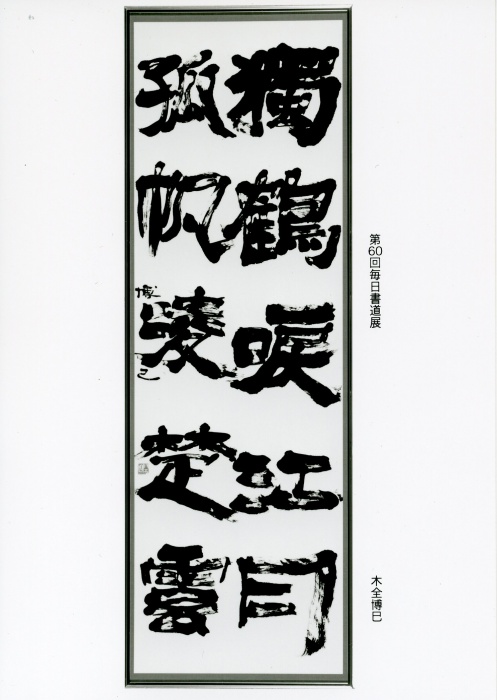 獨鶴唳江月
孤帆凌楚雲
博巳
第60回毎日書道展
木全博巳